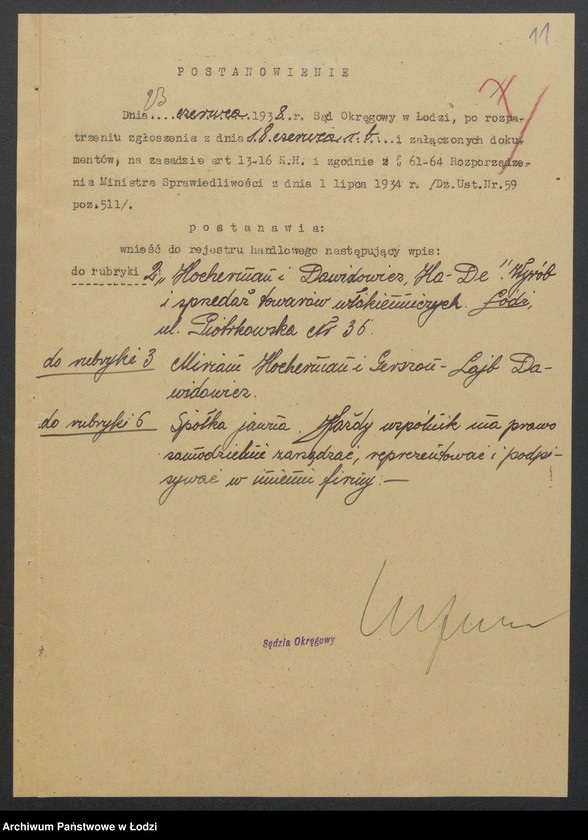 11
POSTANOWIENIE
Dnia....23 czerwca.1938.r. Sąd Okręgowy w Łodzi, po rozpa-
trzeniu zgłoszenia z dnia 18 czerwca r.b...i załączonych doku-
mentów, na zasadzie art 13-16 K.H. i zgodnie z §§ 61-64 Rozporządze-
nia Ministra Sprawiedliwości z dnia 1 lipca 1934 r. /Dz.Ust.Nr.59
poz.511/.
postanawia:
wnieść do rejestru handlowego następujący wpis:
do rubryki 2 „Hocherman i Dawidowicz, Ha-De". Wyrób
i sprzedaż towarów włókienniczych. Łódź,
ul. Piotrkowska Nr 36.
do rubryki 3 Miriam Hocherman i Gerszon-Lajb Da-
widowicz.
do rubryki 6 Spółka jawna. Każdy wspólnik ma prawo
samodzielnie zarządzać, reprezentować i podpi-
sywać w imieniu firmy.—
Sędzia Okręgowy
Archiwum Państwowe w Łodzi